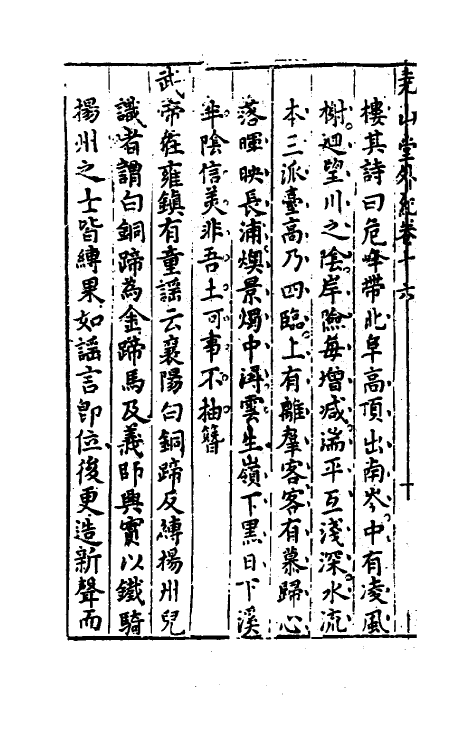 堯山堂外紀卷十六 十
樓其詩曰危峰帶北阜高頂出南岑中有凌風
榭迴望川之陰岸險每增减湍平互淺深水流
本三派臺高乃四臨上有離羣客客有慕歸心
落暉映長浦煥景燭中潯雲生嶺下黑日下溪
半陰信美非吾土可事不抽簪
武帝在雍鎮有童謡云襄陽白銅蹄反縛揚州兒
識者謂白銅蹄為金蹄馬及義師興實以鐵騎
揚州之士皆縛果如謡言卽位後更造新聲而